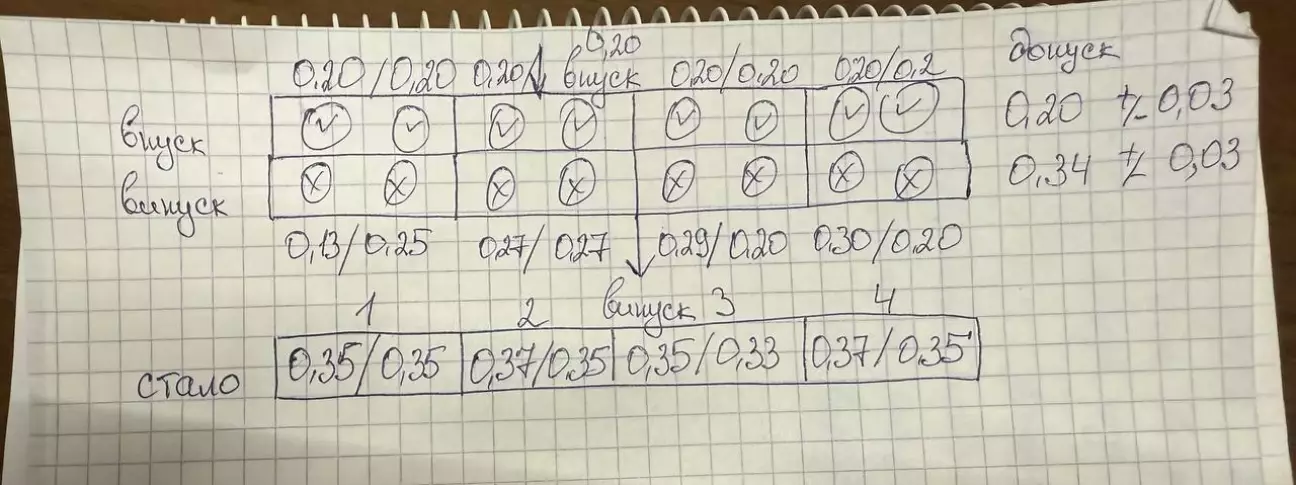 0,20
0,20/0,20 0,20/ впуск 0,20/0,20 0,20/0,2 допуск
впуск 0,20 +/- 0,03
випуск 0,34 +/- 0,03
0,13/0,25 0,27/0,27 0,29/0,20 0,30/0,20
1 2 випуск 3 4
стало 0,35/0,35 0,37/0,35 0,35/0,33 0,37/0,35